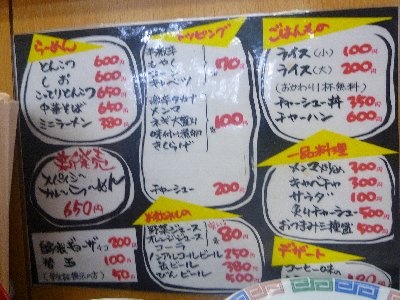 らーめん
とんこつ 600円
しお 600円
こってりとんこつ 650円
中華そば 650円
ミニラーメン 380円
新発売
スパイシー
カレーらーめん
650円
ギョーザ 200円
替玉 100円
50円
トッピング
もやし
キャベツ
170円
メンマ
ネギ大盛り
味付煮卵
きくらげ
100円
チャーシュー 200円
のみもの
野菜ジュース
オレンジジュース
コーラ
80円
ノンアルコールビール 250円
缶ビール 380円
びんビール 500円
ごはんもの
ライス(小) 100円
ライス(大) 200円
(おかわり1杯無料)
チャーシュー丼 350円
チャーハン 600円
一品料理
メンマ炒め 300円
キャベチャ 300円
サラダ 100円
炙りチャーシュー 500円
おつまみ三種盛 500円
デザート
コーヒー味の